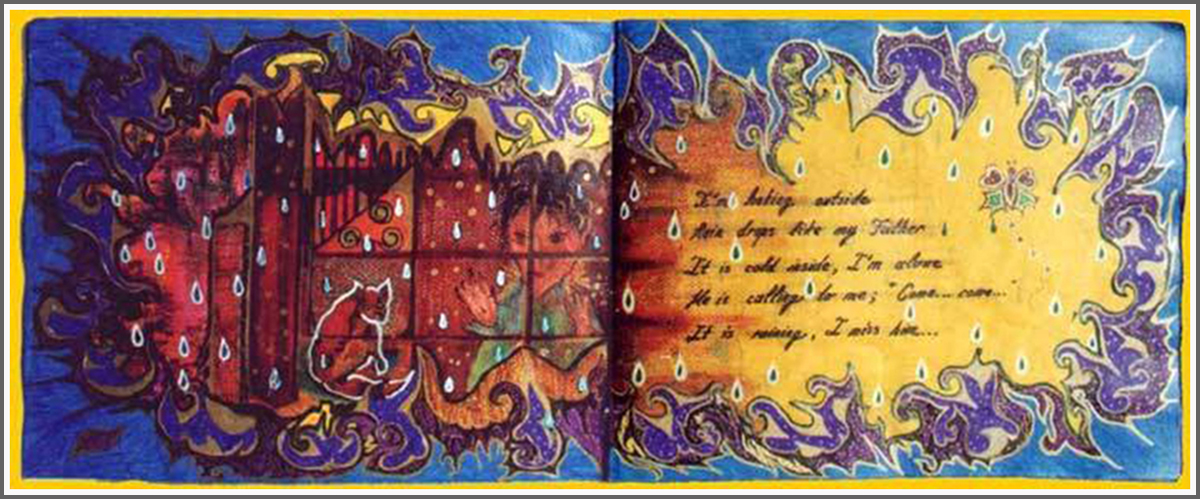 I'm looking outside
Rain drops like my Father
It is cold inside, I'm alone
He is calling to me; "Come... come..."
It is raining, I miss him...